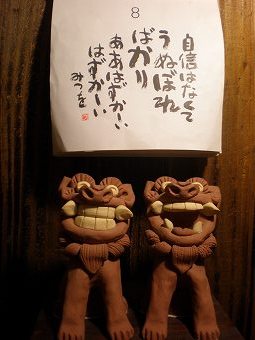 8
自信はなくて
うぬぼれ
ばかり
ああはずかーしい
はずかーしい
みつを